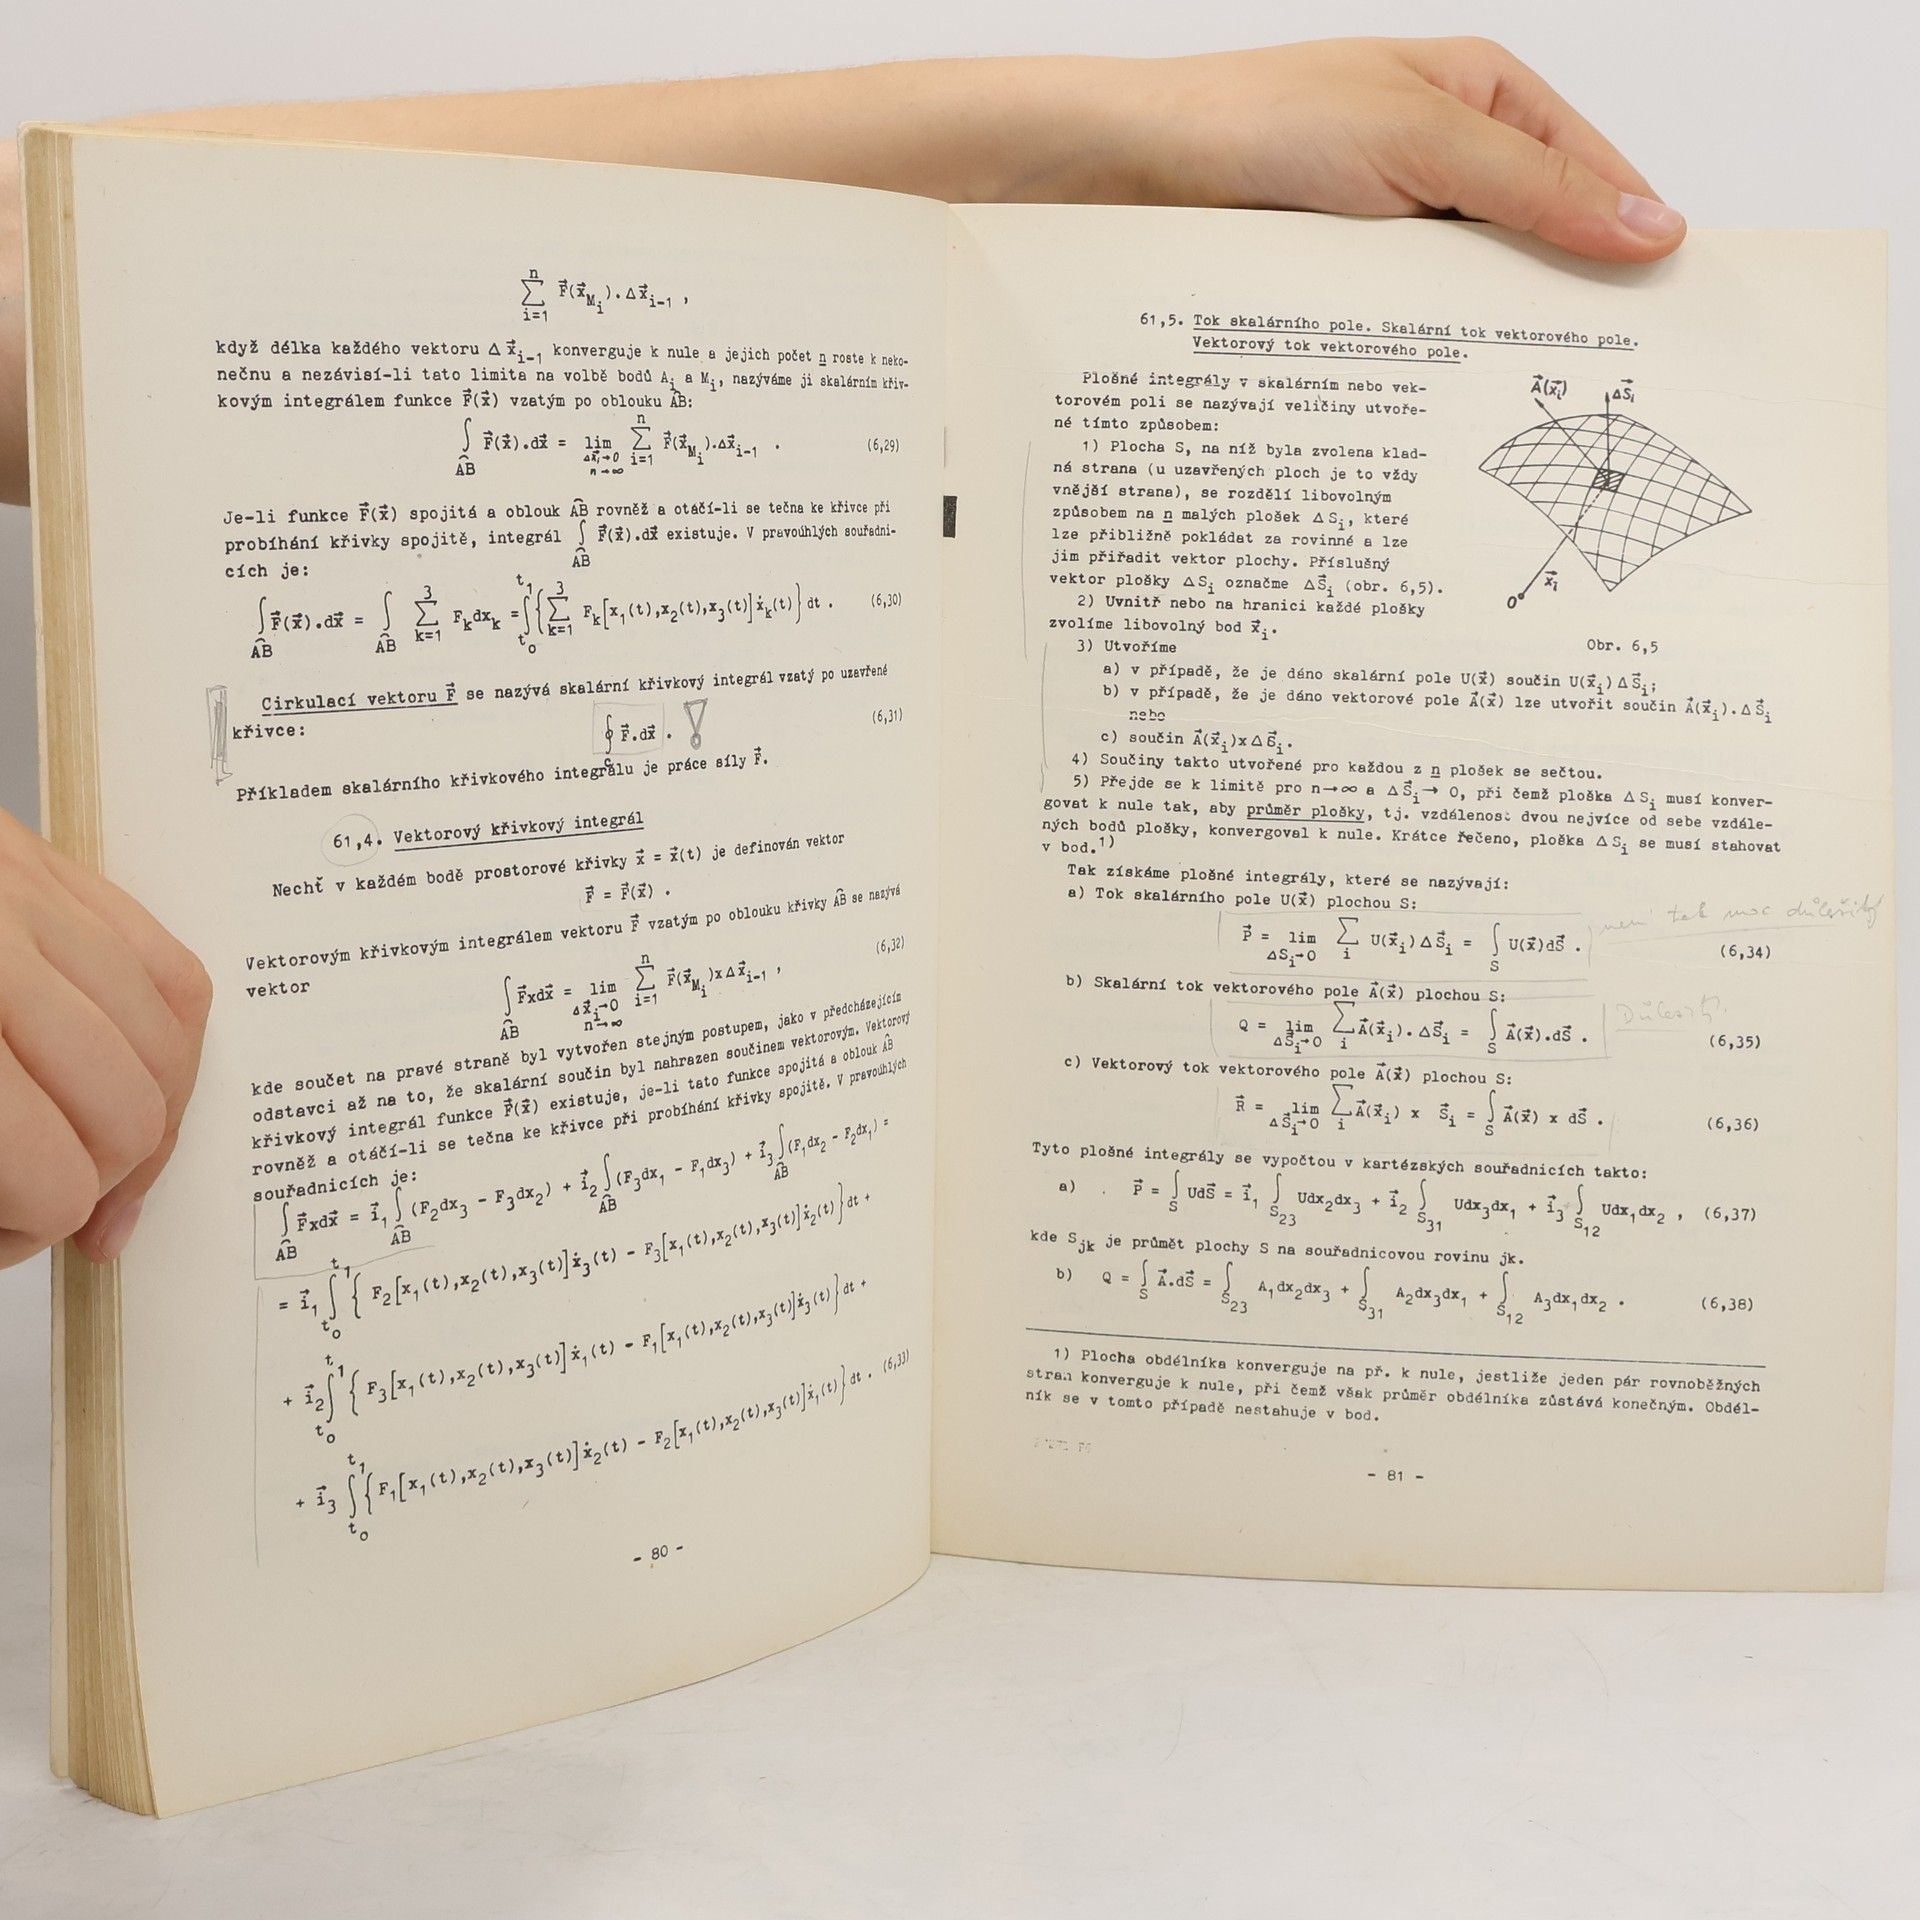 n
∑ F⃗(x⃗_Mi).Δx⃗_i-1 ,
i=1
když délka každého vektoru Δx⃗_i-1 konverguje k nule a jejich počet n roste k neko-
nečnu a nezávisí-li tato limita na volbě bodů A_i a M_i, nazýváme ji skalárním křiv-
kovým integrálem funkce F⃗(x⃗) vzatým po oblouku A͡B:
∫_A͡B F⃗(x⃗).dx⃗ = lim_{Δx⃗_i→0, n→∞} ∑_{i=1}^{n} F⃗(x⃗_Mi).Δx⃗_i-1 . (6,29)
Je-li funkce F⃗(x⃗) spojitá a oblouk A͡B rovněž a otáčí-li se tečna ke křivce při
probíhání křivky spojitě, integrál ∫_A͡B F⃗(x⃗).dx⃗ existuje. V pravoúhlých souřadni-
cích je:
∫_A͡B F⃗(x⃗).dx⃗ = ∫_A͡B ∑_{k=1}^{3} F_k dx_k = ∫_{t_o}^{t_1} {∑_{k=1}^{3} F_k[x_1(t),x_2(t),x_3(t)]ẋ_k(t)} dt . (6,30)
Cirkulací vektoru F⃗ se nazývá skalární křivkový integrál vzatý po uzavřené
křivce:
∮_c F⃗.dx⃗ . ! (6,31)
Příkladem skalárního křivkového integrálu je práce síly F⃗.
61,4. Vektorový křivkový integrál
Nechť v každém bodě prostorové křivky x⃗ = x⃗(t) je definován vektor
F⃗ = F⃗(x⃗) .
Vektorovým křivkovým integrálem vektoru F⃗ vzatým po oblouku křivky A͡B se nazývá
vektor
∫_A͡B F⃗xdx⃗ = lim_{Δx⃗_i→0, n→∞} ∑_{i=1}^{n} F⃗(x⃗_Mi)xΔx⃗_i-1 , (6,32)
kde součet na pravé straně byl vytvořen stejným postupem, jako v předcházejícím
odstavci až na to, že skalární součin byl nahrazen součinem vektorovým. Vektorový
křivkový integrál funkce F⃗(x⃗) existuje, je-li tato funkce spojitá a oblouk A͡B
rovněž a otáčí-li se tečna ke křivce při probíhání křivky spojitě. V pravoúhlých
souřadnicích je:
∫_A͡B F⃗xdx⃗ = i⃗_1 ∫_A͡B (F_2dx_3 - F_3dx_2) + i⃗_2 ∫_A͡B (F_3dx_1 - F_1dx_3) + i⃗_3 ∫_A͡B (F_1dx_2 - F_2dx_1) =
= i⃗_1 ∫_{t_o}^{t_1} { F_2[x_1(t),x_2(t),x_3(t)]ẋ_3(t) - F_3[x_1(t),x_2(t),x_3(t)]ẋ_2(t)} dt +
+ i⃗_2 ∫_{t_o}^{t_1} { F_3[x_1(t),x_2(t),x_3(t)]ẋ_1(t) - F_1[x_1(t),x_2(t),x_3(t)]ẋ_3(t)} dt +
+ i⃗_3 ∫_{t_o}^{t_1} {F_1[x_1(t),x_2(t),x_3(t)]ẋ_2(t) - F_2[x_1(t),x_2(t),x_3(t)]ẋ_1(t)} dt . (6,33)
- 80 -
61,5. Tok skalárního pole. Skalární tok vektorového pole.
Vektorový tok vektorového pole.
Plošné integrály v skalárním nebo vek-
torovém poli se nazývají veličiny utvoře-
né tímto způsobem:
1) Plocha S, na níž byla zvolena klad-
ná strana (u uzavřených ploch je to vždy
vnější strana), se rozdělí libovolným
způsobem na n malých plošek ΔS_i, které
lze přibližně pokládat za rovinné a lze
jim přiřadit vektor plochy. Příslušný
vektor plošky ΔS_i označme ΔS⃗_i (obr. 6,5).
2) Uvnitř nebo na hranici každé plošky
zvolíme libovolný bod x⃗_i.
A⃗(x⃗_i) ΔS⃗_i
x⃗_i
O
Obr. 6,5
3) Utvoříme
a) v případě, že je dáno skalární pole U(x⃗) součin U(x⃗_i)ΔS⃗_i;
b) v případě, že je dáno vektorové pole A⃗(x⃗) lze utvořit součin A⃗(x⃗_i).ΔS⃗_i
nebo
c) součin A⃗(x⃗_i)xΔS⃗_i.
4) Součiny takto utvořené pro každou z n plošek se sečtou.
5) Přejde se k limitě pro n→∞ a ΔS⃗_i→ 0, při čemž ploška ΔS_i musí konver-
govat k nule tak, aby průměr plošky, tj. vzdálenost dvou nejvíce od sebe vzdále-
ných bodů plošky, konvergoval k nule. Krátce řečeno, ploška ΔS_i se musí stahovat
v bod.1)
Tak získáme plošné integrály, které se nazývají:
a) Tok skalárního pole U(x⃗) plochou S:
není tak moc důležitý
P⃗ = lim_{ΔS_i→0} ∑_i U(x⃗_i)ΔS⃗_i = ∫_S U(x⃗)dS⃗ . (6,34)
b) Skalární tok vektorového pole A⃗(x⃗) plochou S:
Q = lim_{ΔS⃗_i→0} ∑_i A⃗(x⃗_i).ΔS⃗_i = ∫_S A⃗(x⃗).dS⃗ . (6,35)
c) Vektorový tok vektorového pole A⃗(x⃗) plochou S:
R⃗ = lim_{ΔS⃗_i→0} ∑_i A⃗(x⃗_i) x S⃗_i = ∫_S A⃗(x⃗) x dS⃗ . (6,36)
Tyto plošné integrály se vypočtou v kartézských souřadnicích takto:
a) P⃗ = ∫_S UdS⃗ = i⃗_1 ∫_{S_23} Udx_2dx_3 + i⃗_2 ∫_{S_31} Udx_3dx_1 + i⃗_3 ∫_{S_12} Udx_1dx_2 , (6,37)
kde S_jk je průmět plochy S na souřadnicovou rovinu jk.
b) Q = ∫_S A⃗.dS⃗ = ∫_{S_23} A_1dx_2dx_3 + ∫_{S_31} A_2dx_3dx_1 + ∫_{S_12} A_3dx_1dx_2 . (6,38)
1) Plocha obdélníka konverguje na př. k nule, jestliže jeden pár rovnoběžných
stran konverguje k nule, při čemž však průměr obdélníka zůstává konečným. Obdél-
ník se v tomto případě nestahuje v bod.
- 81 -